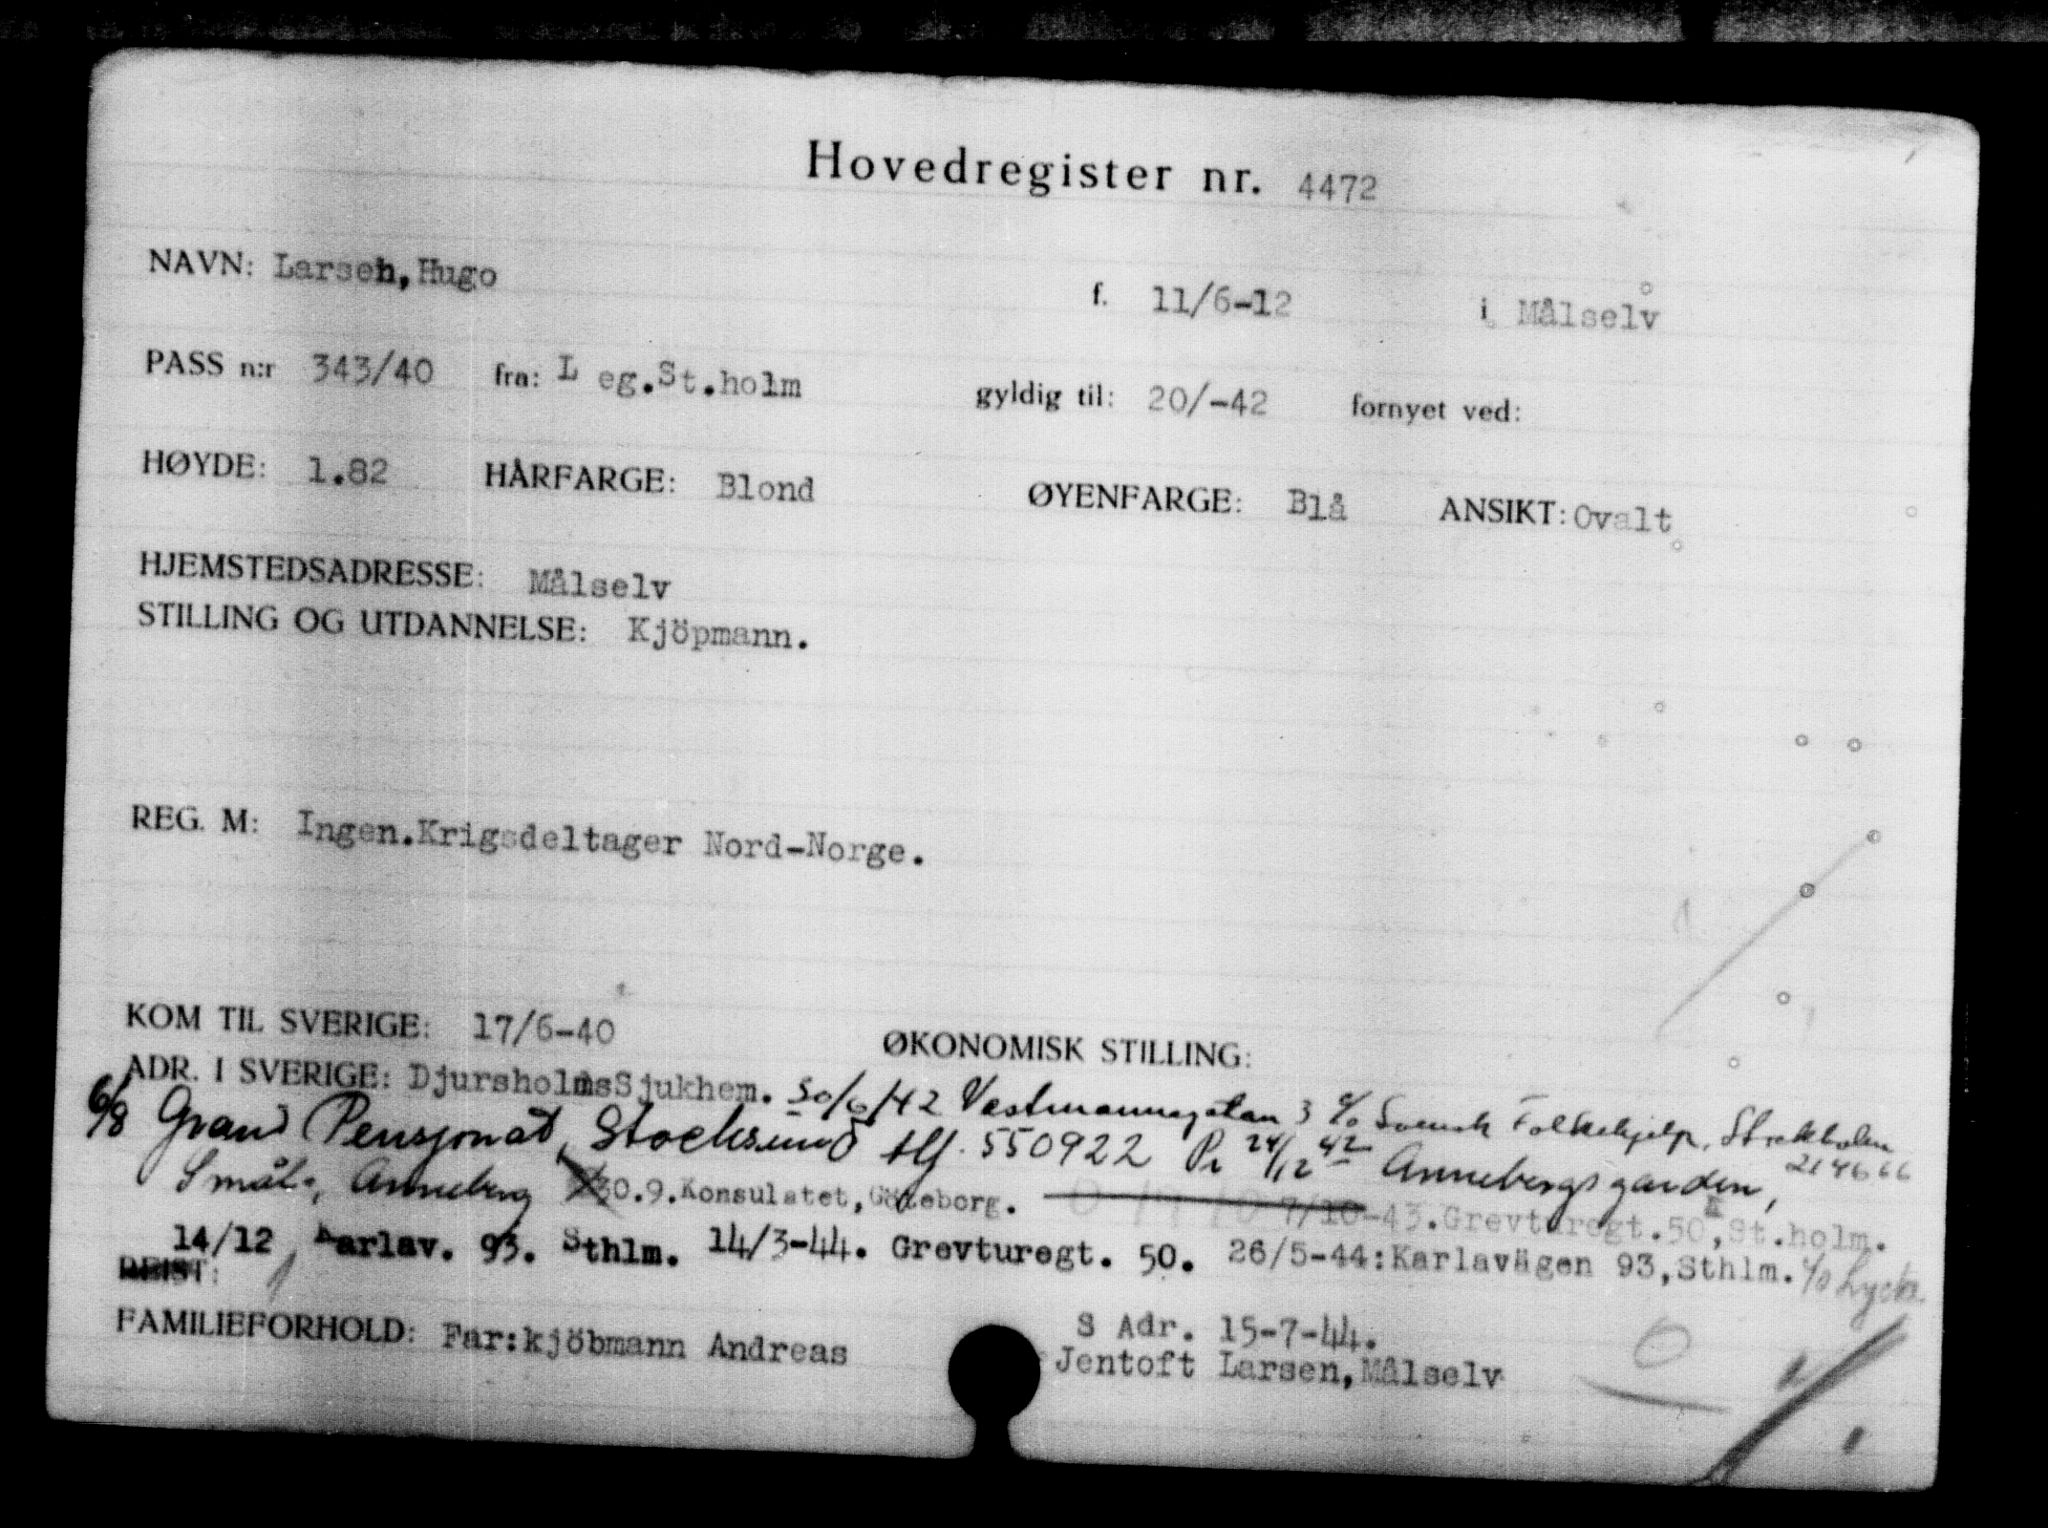 Hovedregister nr. 4472
NAVN: Larsen, Hugo f. 11/6-12 i Målselv
PASS n:r 343/40 fra: Leg.St.holm gyldig til: 20/-42 fornyet ved:
HØYDE: 1.82 HÅRFARGE: Blond ØYENFARGE: Blå ANSIKT: Ovalt
HJEMSTEDSADRESSE: Målselv
STILLING OG UTDANNELSE: Kjöpmann.
REG. M: Ingen.Krigsdeltager Nord-Norge.
KOM TIL SVERIGE: 17/6-40 ØKONOMISK STILLING:
ADR. I SVERIGE: DjursholmsSjukhem. 30/6/42 Vestmannagatan 3 c/o Svensk Folkehjelp, Stockholm
6/8 Grand Pensjonat, Stocksund tlf. 550922 Pr 24/12 42 Annebergsgarden, 214666
Smål., Anneberg 30.9.Konsulatet,Göteborg. 7/10-43.Grevturegt.50, St.holm.
14/12 Karlav. 93. Sthlm. 14/3-44. Grevturegt. 50. 26/5-44:Karlavägen 93,Sthlm. c/o Lycke
REIST:
S Adr. 15-7-44.
FAMILIEFORHOLD: Far:kjöbmann Andreas Jentoft Larsen,Målselv